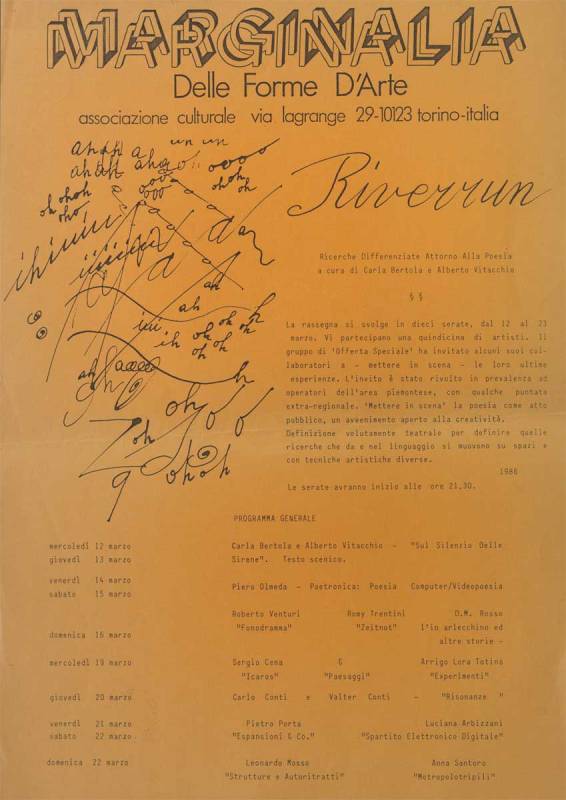 MARGINALIA
Delle Forme D'Arte
associazione culturale via lagrange 29-10123 torino-italia
ah ah a un un
ah ah ahgo oooo
oh ohoh
oho
ihiuiu
ooo
oh oh
oh
Riverrun
Ricerche Differenziate Attorno Alla Poesia
a cura di Carla Bertola e Alberto Vitacchio
§ §
ah
ah
iiii
ih oh oh oh
oh oh
ah
oh
Zoh
oh
9 ohoh
La rassegna si svolge in dieci serate, dal 12 al 23
marzo. Vi partecipano una quindicina di artisti. Il
gruppo di 'Offerta Speciale' ha invitato alcuni suoi col-
laboratori a - mettere in scena - le loro ultime
esperienze. L'invito è stato rivolto in prevalenza ad
operatori dell'area piemontese, con qualche puntata
extra-regionale. 'Mettere in scena' la poesia come atto
pubblico, un avvenimento aperto alla creatività.
Definizione volutamente teatrale per definire quelle
ricerche che da e nel linguaggio si muovono su spazi e
con tecniche artistiche diverse.
1986
Le serate avranno inizio alle ore 21,30.
PROGRAMMA GENERALE
mercoledì 12 marzo Carla Bertola e Alberto Vitacchio - "Sul Silenzio Delle
giovedì 13 marzo Sirene". Testo scenico.
venerdì 14 marzo
sabato 15 marzo Piero Olmeda - Poetronica: Poesia Computer/Videopoesia
Roberto Venturi Romy Trentini D.M. Rosso
"Fonodramma" "Zeitnot" l'io arlecchino ed
domenica 16 marzo altre storie -
mercoledì 19 marzo Sergio Cena G Arrigo Lora Totino
"Icaros" "Paesaggi" "Experimenti"
giovedì 20 marzo Carlo Conti e Valter Conti - "Risonanze "
venerdì 21 marzo Pietro Porta Luciana Arbizzani
sabato 22 marzo "Espansioni & Co." "Spartito Elettronico Digitale"
domenica 22 marzo Leonardo Mosso Anna Santoro
"Strutture e Autoritratti" "Metropolotripili"